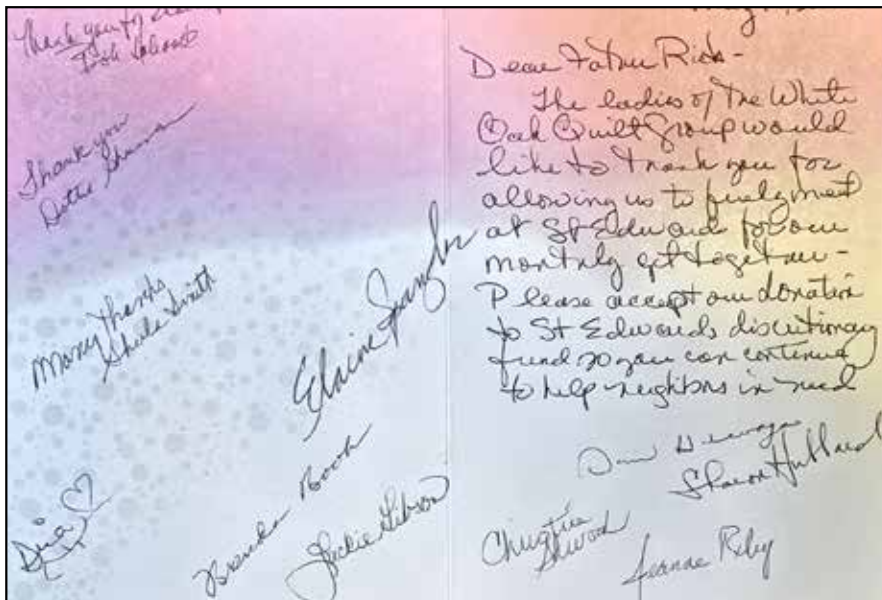 Thank you for
Thank you
Dottie
Many thanks
Sheila Smith
Elaine
Brenda Book
Jackie Gibson
Dear Father Rick -
The ladies of The White
Oak Quilt Group would
like to thank you for
allowing us to
at St Edwards for our
monthly get together -
Please accept our donation
to St Edwards discretionary
fund so you can continue
to help neighbors in need
Sharon Hubbard
Christine
Jeanne Riley